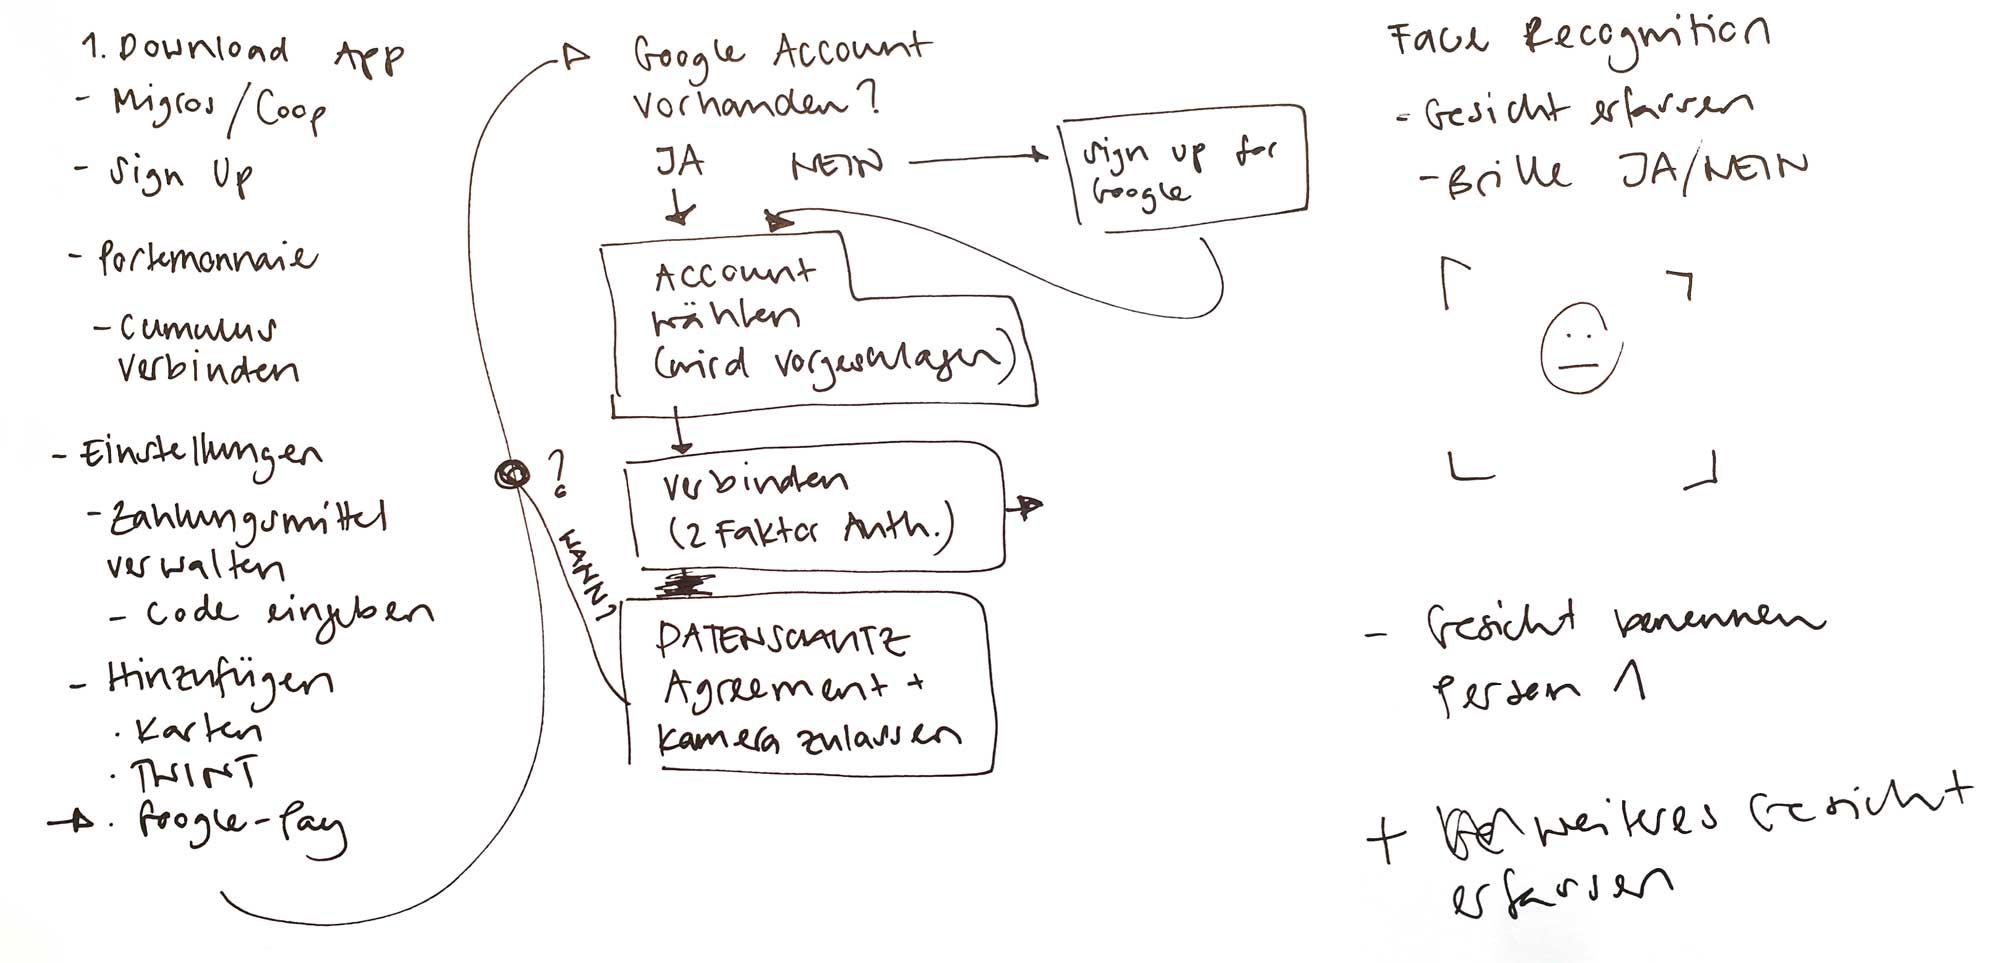 1. Download App
- Migros / Coop
- Sign Up
- Portemonnaie
- Cumulus
verbinden
- Einstellungen
- Zahlungsmittel
verwalten
- Code eingeben
- Hinzufügen
· Karten
· TWINT
· Google-Pay
Google Account
vorhanden?
JA NEIN
sign up for
Google
Account
wählen
(wird vorgeschlagen)
?
WANN?
verbinden
(2 Faktor Auth.)
DATENSCHUTZ
Agreement +
Kamera zulassen
Face Recognition
- Gesicht erfassen
- Brille JA/NEIN
- Gesicht benennen
Person 1
+ weiteres Gesicht
erfassen